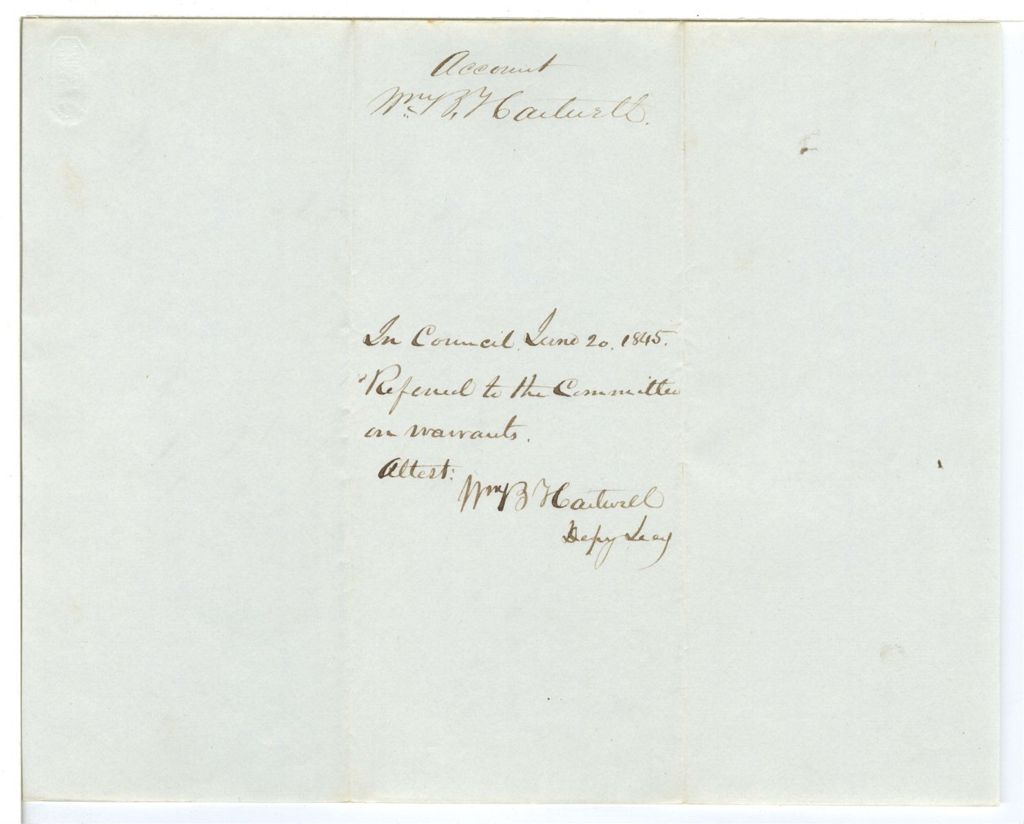 Account
Wm. B. Hartwell.
In Council June 20. 1845.
Referred to the Committee
on warrants.
Attest:
Wm B Hartwell
Depy Secy